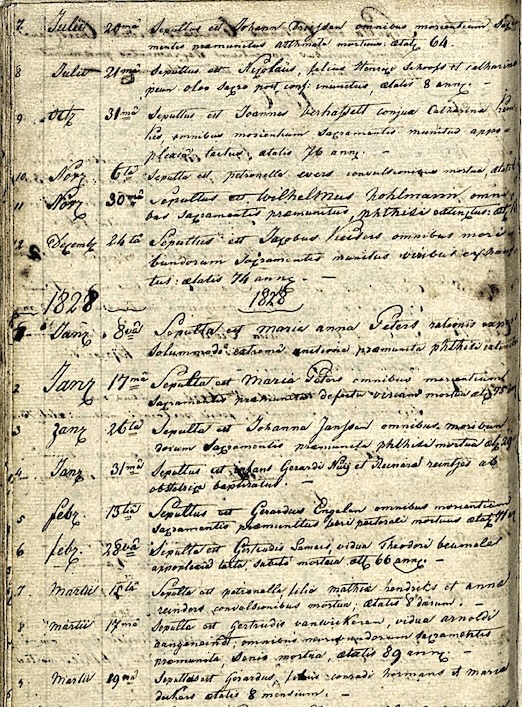 7 Julii 20ma Sepultus est Johann omnibus morientium Sacra
mentis praemunitus asthmate mortuus. aetatis 64.
8 Julii 21ma Sepultus est Nicolaus, filius Henrici et catharina
oleo sacro post conf. inunctus, aetatis 8 annorum
9 31ma Sepultus est Joannes Verhasselt conjux Catharina
omnibus morientium Sacramentis munitus appo
plexia tactus, aetatis 76 annor
10 Novz 6ta Sepulta est petronella evers convulsionibus mortua, aetatis
11 Novz 30ma Sepultus est Wilhelmus hohlmann omni
bus Sacramentis praemunitus, phthisi extinctus:
12 Decembz 24ta Sepultus est Jacobus omnibus mori
bundorum Sacramentis munitus viribus exhaus
tus: aetatis 74 annz
1828 1828
Janz 8va Sepulta est maria anna Peters rationis
solummodo extrema unctione praemunita phthisi
2 Janz 17ma Sepulta est Maria Peters omnibus morientium
Sacramentis praemunita defectu virium mortua aetz 75
3 Janz 26ta Sepulta est Johanna Janssen omnibus moribun
dorum Sacramentis praemunita phthisi mortua aetz 29
4 Janz 31ma Sepultus est infans Gerardi et Reinera reintjes ab
obstetrice baptizatus.
5 febz 13tia Sepultus est Gerardus Engelen omnibus morientium
Sacramentis praemunitus pectorali mortuus aetz 77
6 febz 28va Sepulta est Gertrudis vidua Theodori beumeler
appoplexia tacta, subito mortua aet 66 annz
7 Martii Sepulta est petronella filia mathiae hendriks et anna
reinders convulsionibus mortua; aetatis 8 dierum.
8 martii 17ma Sepulta est Gertrudis vanwickeren, vidua arnoldi
omnibus moribundorum sacramentis
praemunita senio mortua, aetatis 89 annz
9 Martii 19ma Sepultus est Gerardus, filius conradi hermans et maria
aetatis 8 mensium.